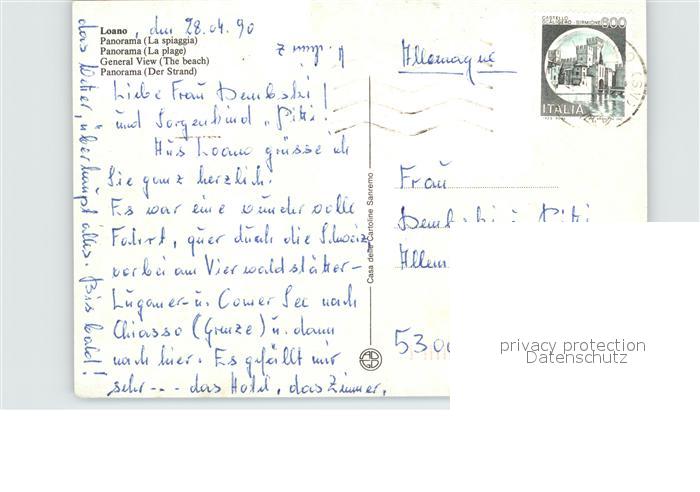 Loano, den 28.04.90
Panorama (La spiaggia)
Panorama (La plage)
General View (The beach)
Panorama (Der Strand)
Liebe Frau Dembski!
und Sorgenkind „Pitti!
Aus Loano grüsse ich
Sie ganz herzlich.
Es war eine wundervolle
Fahrt, quer durch die Schweiz
vorbei am Vierwaldstätter-
Luganer- u. Comer See nach
Chiasso (Grenze) u. dann
nach hier. Es gefällt mir
sehr --- das Hotel, das Zimmer,
das Wetter, überhaupt alles. Bis bald!
Casa delle Cartoline Sanremo
Allemagne
CASTELLO
SCALIGERO - SIRMIONE
800
ITALIA
Frau
Dembski
Allem
5300
privacy protection
Datenschutz